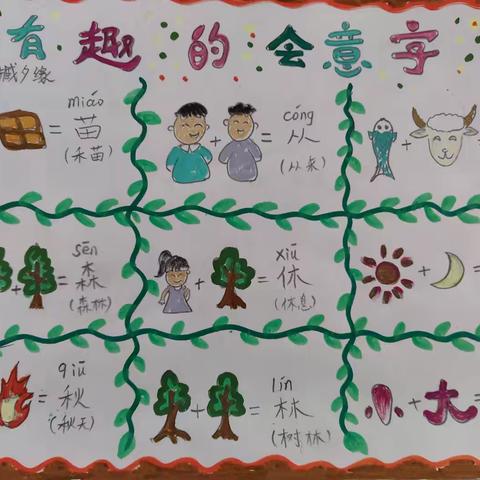 有趣的会意字
夕缘
miáo
+ = 苗
(禾苗)
cóng
+ = 从
(从来)
+ =
sēn
+ = 森
(森林)
xiū
+ = 休
(休息)
+ =
qiū
= 秋
(秋天)
lín
+ = 林
(树林)
小 + 大 =